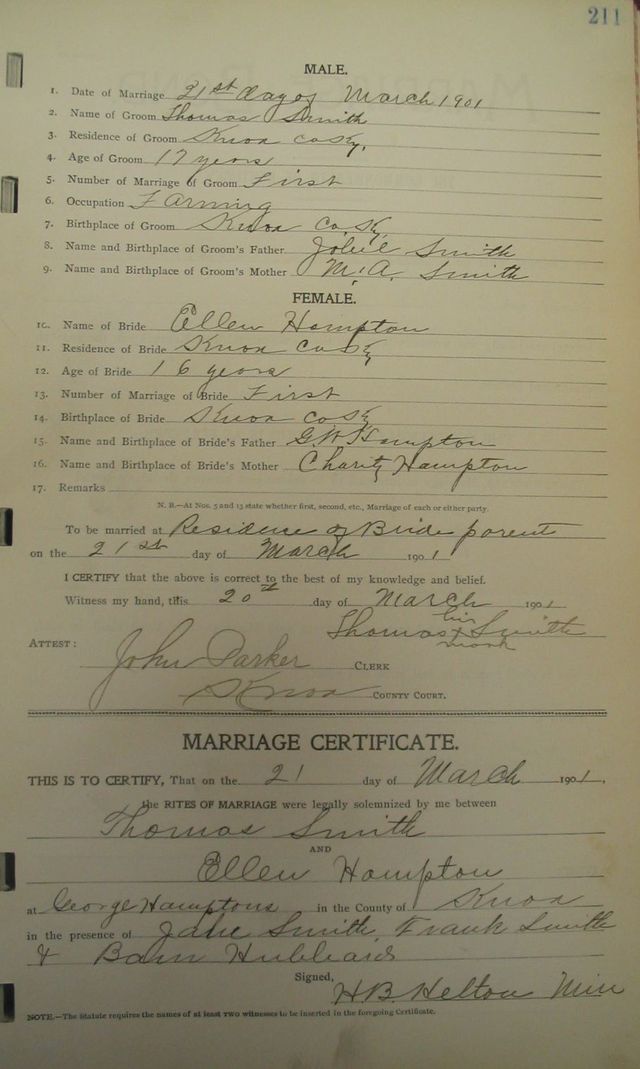 211
MALE.
1. Date of Marriage 21st day of March 1901
2. Name of Groom Thomas Smith
3. Residence of Groom Knox Co Ky,
4. Age of Groom 17 years
5. Number of Marriage of Groom First
6. Occupation Farming
7. Birthplace of Groom Knox Co. Ky.
8. Name and Birthplace of Groom's Father Smith
9. Name and Birthplace of Groom's Mother M. A. Smith
FEMALE.
10. Name of Bride Ellen Hampton
11. Residence of Bride Knox Co Ky
12. Age of Bride 16 years
13. Number of Marriage of Bride First
14. Birthplace of Bride Knox Co Ky
15. Name and Birthplace of Bride's Father G. W. Hampton
16. Name and Birthplace of Bride's Mother Charity Hampton
17. Remarks
N. B.—At Nos. 5 and 13 state whether first, second, etc., Marriage of each or either party.
To be married at Residence of Bride parent
on the 21st day of March 1901
I CERTIFY that the above is correct to the best of my knowledge and belief.
Witness my hand, this 20th day of March 1901
his
Thomas x Smith
mark
ATTEST:
John Parker CLERK
Knox COUNTY COURT.
MARRIAGE CERTIFICATE.
THIS IS TO CERTIFY, That on the 21 day of March 1901.
the RITES OF MARRIAGE were legally solemnized by me between
Thomas Smith
AND
Ellen Hampton
at George Hamptons in the County of Knox
in the presence of Jane Smith, Frank Smith
& Hubbard
Signed,
H B Helton Min
NOTE.—The Statute requires the names of at least two witnesses to be inserted in the foregoing Certificate.